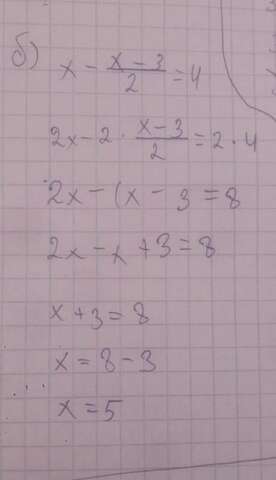 б) x - (x - 3)/2 = 4
2x - 2 · (x - 3)/2 = 2 · 4
2x - (x - 3 = 8
2x - x + 3 = 8
x + 3 = 8
x = 8 - 3
x = 5